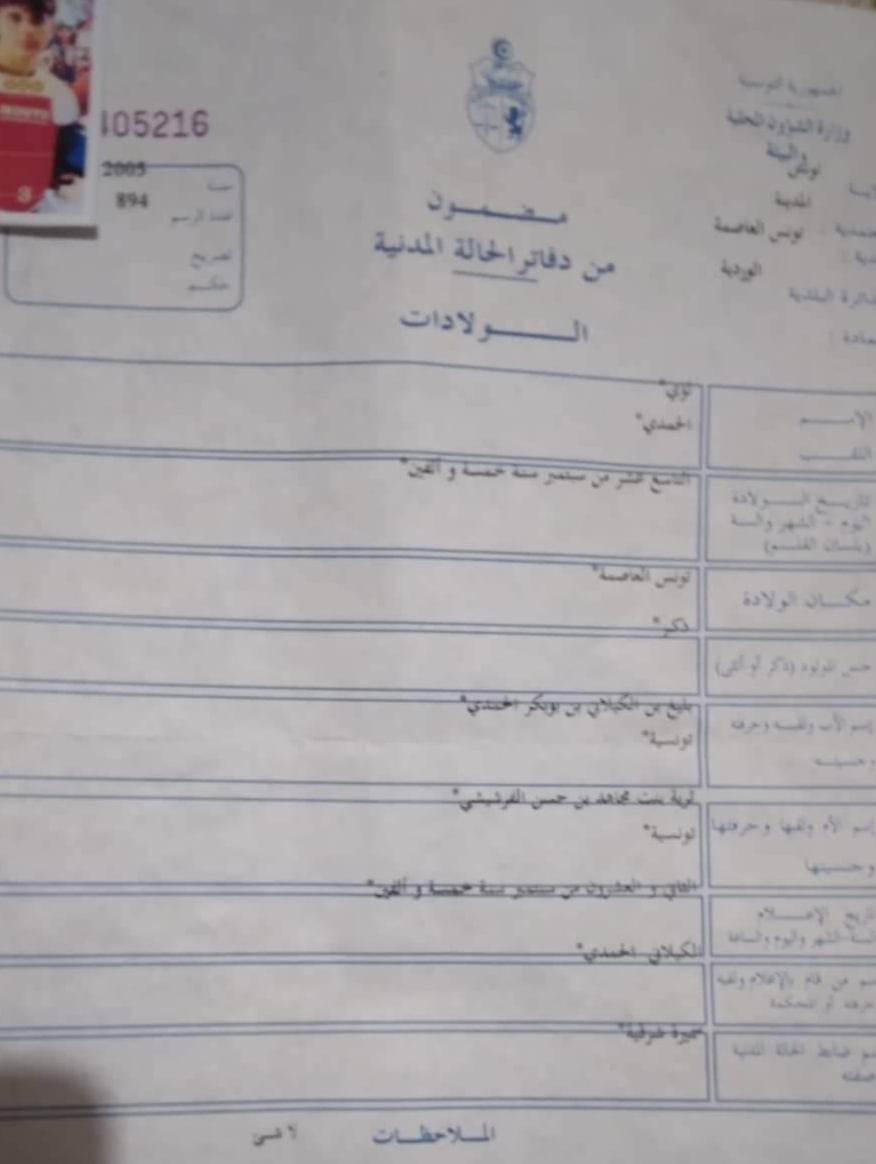 الجمهورية التونسية
وزارة الشؤون المحلية
والبيئة
تونس
المدينة
تونس العاصمة
دائرة البلدية الوردية
105216
سنة 2005
عدد الرسم 894
تصريح
حكم
مضمون
من دفاتر الحالة المدنية
الولادات
الإسم
اللقب الحمدي*
تاريخ الولادة التاسع عشر من سبتمبر سنة خمسة و ألفين*
اليوم - الشهر والسنة
(بلسان القلم)
مكان الولادة تونس العاصمة*
جنس المولود (ذكر أو أنثى) ذكر*
إسم الأب ولقبه وحرفته بليغ بن الكيلاني بن بوبكر الحمدي*
وجنسيته تونسية*
إسم الأم ولقبها وحرفتها بنت مجاهد بن حسن الفرشيشي*
وجنسيتها تونسية*
تاريخ الإعلام الثاني و العشرون من سبتمبر سنة خمسة و ألفين*
السنة والشهر واليوم والساعة
إسم من قام بالإعلام ولقبه الكيلاني الحمدي*
حرفته أو المحكمة
إسم ضابط الحالة المدنية سميرة شرقية*
صفته
الملاحظات لا شيئ